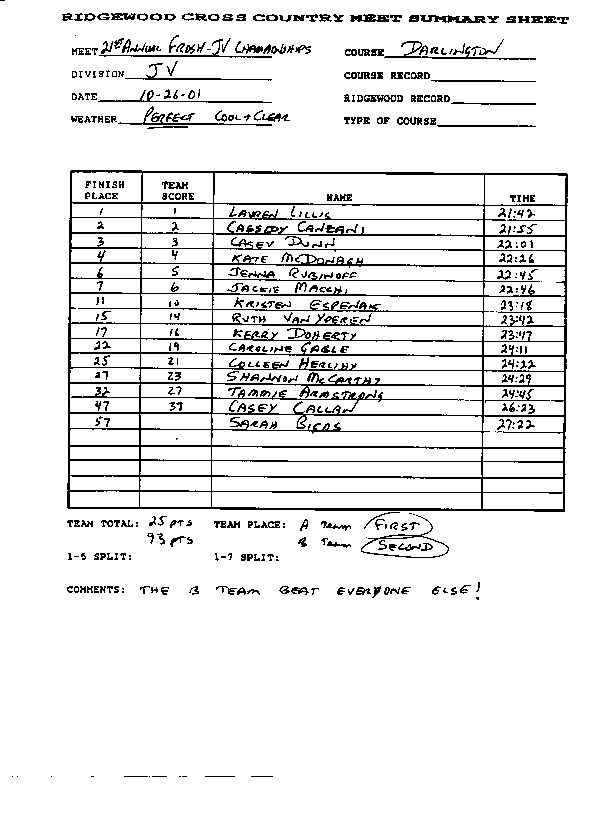 RIDGEWOOD CROSS COUNTRY MEET SUMMARY SHEET
MEET 21st ANNUAL FROSH-JV CHAMPIONSHIPS COURSE DARLINGTON
DIVISION JV COURSE RECORD
DATE 10-26-01 RIDGEWOOD RECORD
WEATHER PERFECT COOL + CLEAR TYPE OF COURSE
FINISH PLACE TEAM SCORE NAME TIME
1 1 LAUREN LILLIS 21:42
2 2 CASSIDY 21:55
3 3 CASEY DUNN 22:01
4 4 KATE McDONAGH 22:26
6 5 JENNA RUBINOFF 22:45
7 6 JACKIE MACCHI 22:46
11 10 KRISTEN ESPENAK 23:18
15 14 RUTH VAN YPEREN 23:42
17 16 KERRY DOHERTY 23:47
22 19 CAROLINE GAGLE 24:11
25 21 COLLEEN HERLIHY 24:22
27 23 SHANNON McCARTHY 24:29
32 27 TAMMIE ARMSTRONG 24:45
47 37 CASEY CALLAN 26:23
57 SARAH 27:22
TEAM TOTAL: 25 PTS TEAM PLACE: A Team FIRST
93 PTS B Team SECOND
1-5 SPLIT: 1-7 SPLIT:
COMMENTS: THE B TEAM BEAT EVERYONE ELSE!